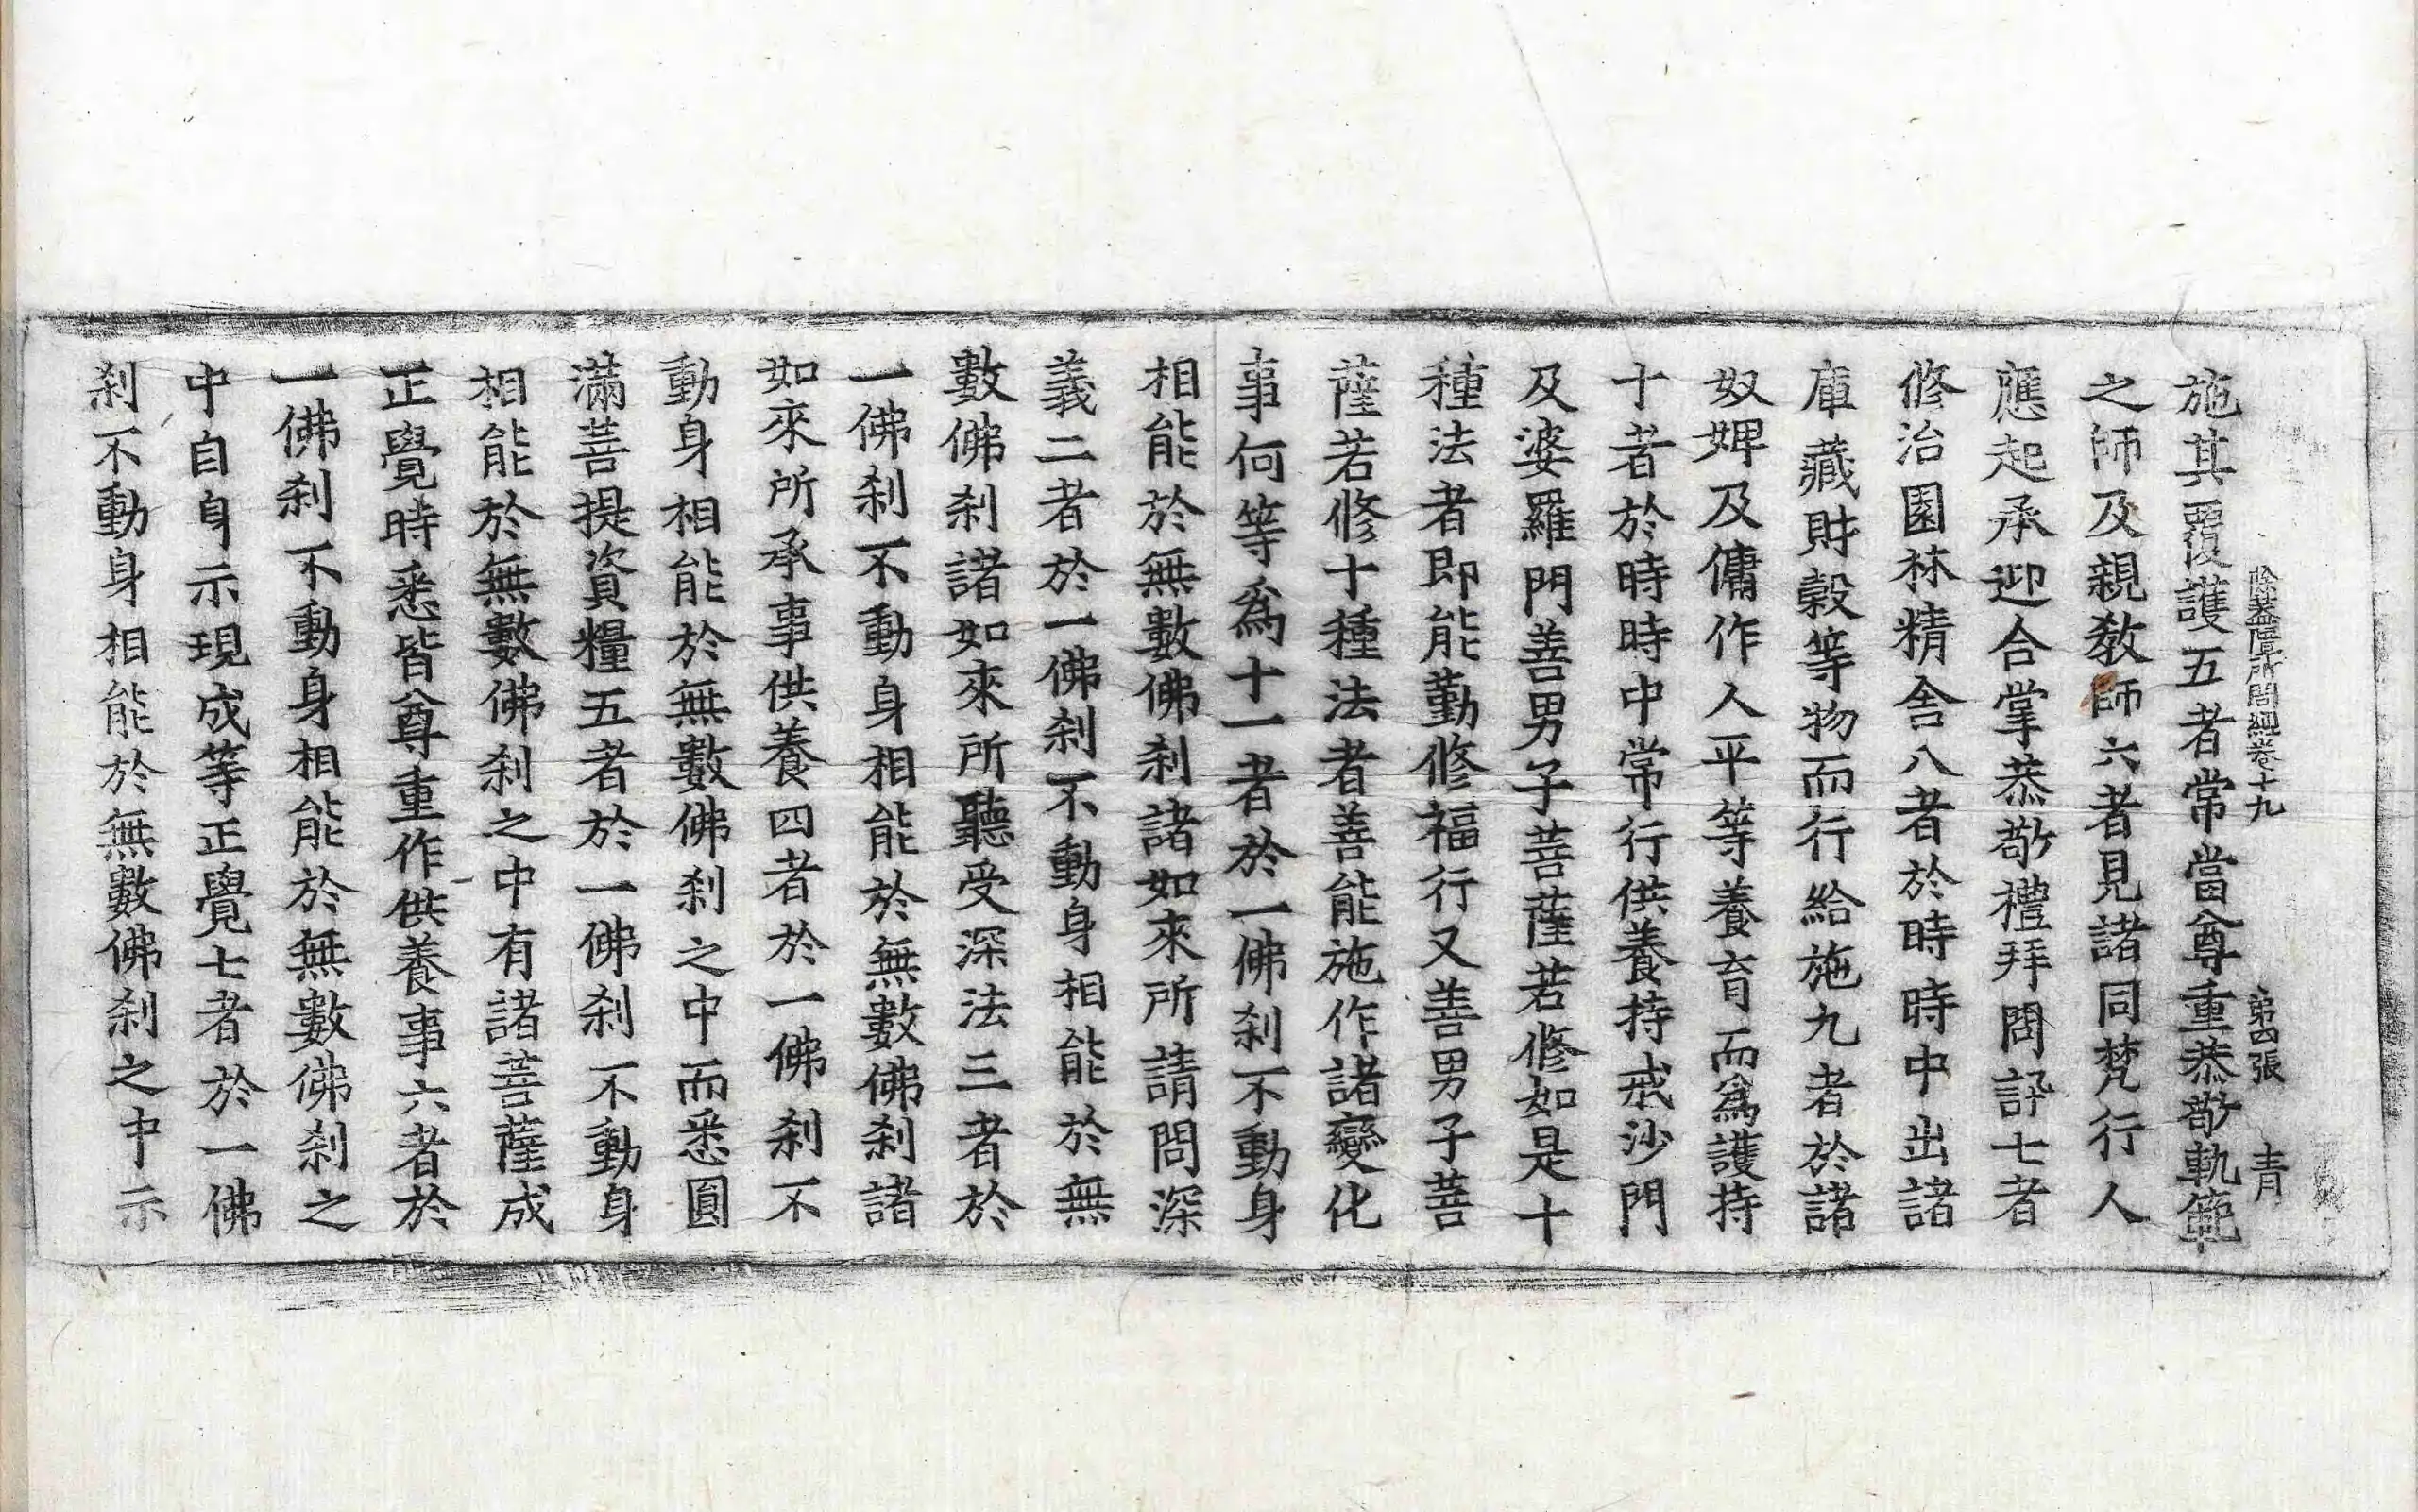 除蓋障所問經卷十九 第四張 青
施其覆護五者常當尊重恭敬軌範
之師及親教師六者見諸同梵行人
應起承迎合掌恭敬禮拜問訊七者
修治園林精舍八者於時時中出諸
庫藏財穀等物而行給施九者於諸
奴婢及傭作人平等養育而爲護持
十者於時時中常行供養持戒沙門
及婆羅門善男子菩薩若修如是十
種法者即能勤修福行又善男子菩
薩若修十種法者善能施作諸變化
事何等爲十一者於一佛刹不動身
相能於無數佛刹諸如來所請問深
義二者於一佛刹不動身相能於無
數佛刹諸如來所聽受深法三者於
一佛刹不動身相能於無數佛刹諸
如來所承事供養四者於一佛刹不
動身相能於無數佛刹之中而悉圓
滿菩提資糧五者於一佛刹不動身
相能於無數佛刹之中有諸菩薩成
正覺時悉皆尊重作供養事六者於
一佛刹不動身相能於無數佛刹之
中自身示現成等正覺七者於一佛
刹不動身相能於無數佛刹之中示